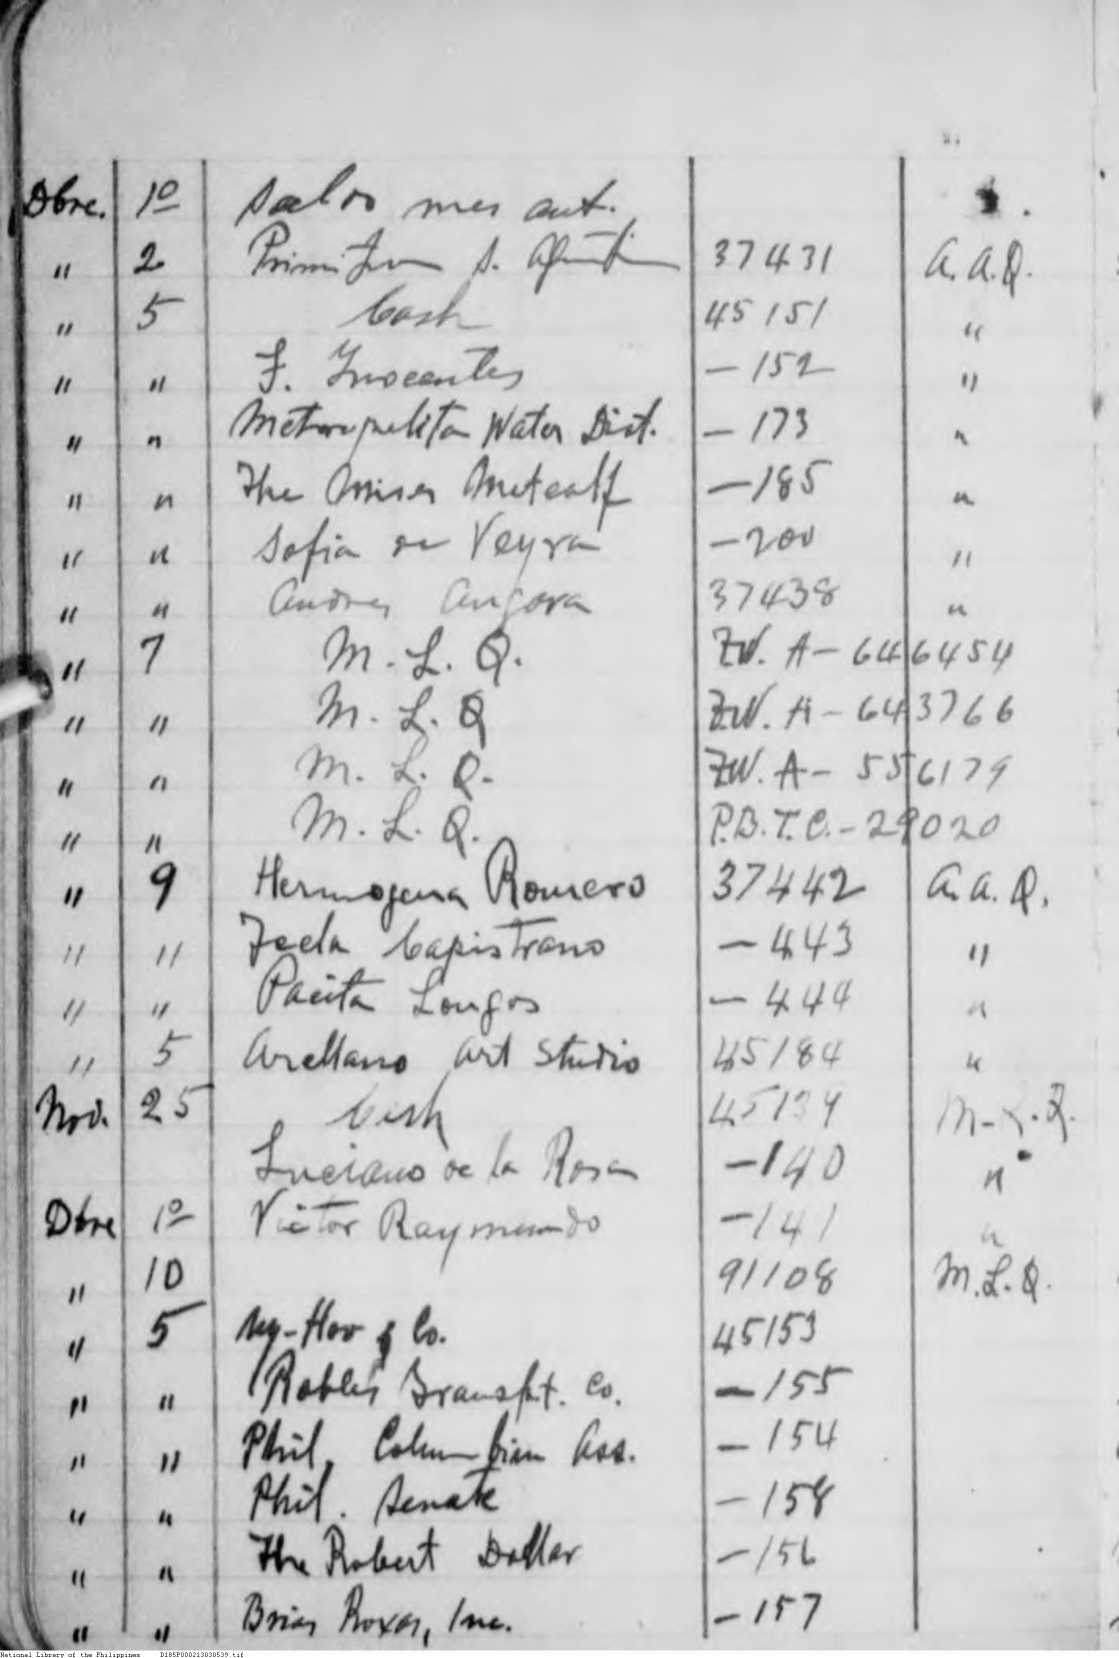 Dbre. 1o Saldo mes ant.
" 2 Primitivo S. 37431 A. A. Q.
" 5 Cash 45151 "
" " F. Inocentes — 152 "
" " Metropolitan Water Dist. — 173 "
" " The Misses Metcalf — 185 "
" " Sofia de Veyra — 200 "
" " Andres Angora 37438 "
" 7 M. L. Q. ZW. A — 646454
" " M. L. Q ZW. A — 643766
" " M. L. Q. ZW. A — 556179
" " M. L. Q. P.B.T.C. — 29020
" 9 Hermogena Romero 37442 A. A. Q.
" " Tecla Capistrano — 443 "
" " Pacita Longos — 444 "
" 5 Arellano Art Studio 45184 "
Nov. 25 Cash 45139 M. L. Q.
Luciano de la Rosa — 140 "
Dbre 1o Victor Raymundo — 141 "
" 10 91108 M. L. Q.
" 5 Uy-Hoo & Co. 45153
" " Robles Transpt. Co. — 155
" " Phil. Columbian Ass. — 154
" " Phil. Senate — 158
" " The Robert Dollar — 156
" " Brias Roxas, Inc. — 157
National Library of the Philippines D185P000213838539.tif